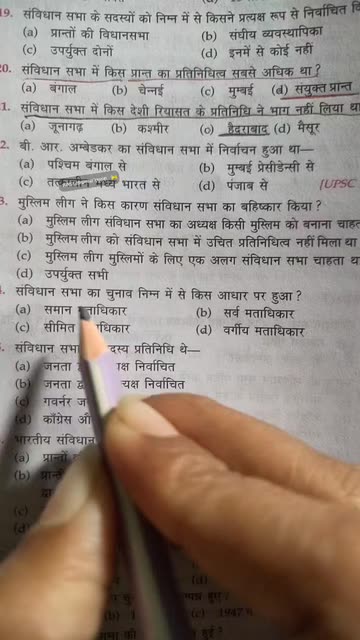 19. संविधान सभा के सदस्यों को निम्न में से किसने प्रत्यक्ष रूप से निर्वाचित कि
(a) प्रान्तों की विधानसभा (b) संघीय व्यवस्थापिका
(c) उपर्युक्त दोनों (d) इनमें से कोई नहीं
20. संविधान सभा में किस प्रान्त का प्रतिनिधित्व सबसे अधिक था ?
(a) बंगाल (b) चेन्नई (c) मुम्बई (d) संयुक्त प्रान्त
21. संविधान सभा में किस देशी रियासत के प्रतिनिधि ने भाग नहीं लिया था
(a) जूनागढ़ (b) कश्मीर (c) हैदराबाद (d) मैसूर
2. बी. आर. अम्बेडकर का संविधान सभा में निर्वाचन हुआ था—
(a) पश्चिम बंगाल से (b) मुम्बई प्रेसीडेन्सी से
(c) तत्कालीन मध्य भारत से (d) पंजाब से [UPSC
3. मुस्लिम लीग ने किस कारण संविधान सभा का बहिष्कार किया ?
(a) मुस्लिम लीग संविधान सभा का अध्यक्ष किसी मुस्लिम को बनाना चाह
(b) मुस्लिम लीग को संविधान सभा में उचित प्रतिनिधित्व नहीं मिला था
(c) मुस्लिम लीग मुस्लिमों के लिए एक अलग संविधान सभा चाहता थ
(d) उपर्युक्त सभी
संविधान सभा का चुनाव निम्न में से किस आधार पर हुआ ?
(a) समान मताधिकार (b) सर्व मताधिकार
(c) सीमित धिकार (d) वर्गीय मताधिकार
संविधान सभा दस्य प्रतिनिधि थे—
(a) जनता क्ष निर्वाचित
(b) जनता द्व यक्ष निर्वाचित
(c) गवर्नर ज
(d) काँग्रेस औ
भारतीय संविधान
(a) प्रान्तों
(b) प्रान्
(c)
(d)
(d)
(c) 1947 में